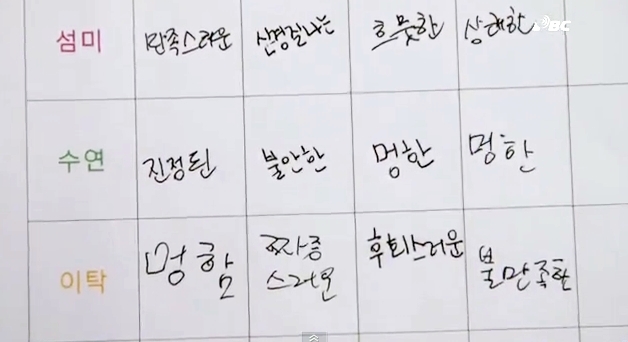 섬미 만족스러운 신경질나는 흐뭇한 상쾌한
수연 진정된 불안한 멍한 멍한
이탁 멍함 짜증스러운 후회스러운 불만족한